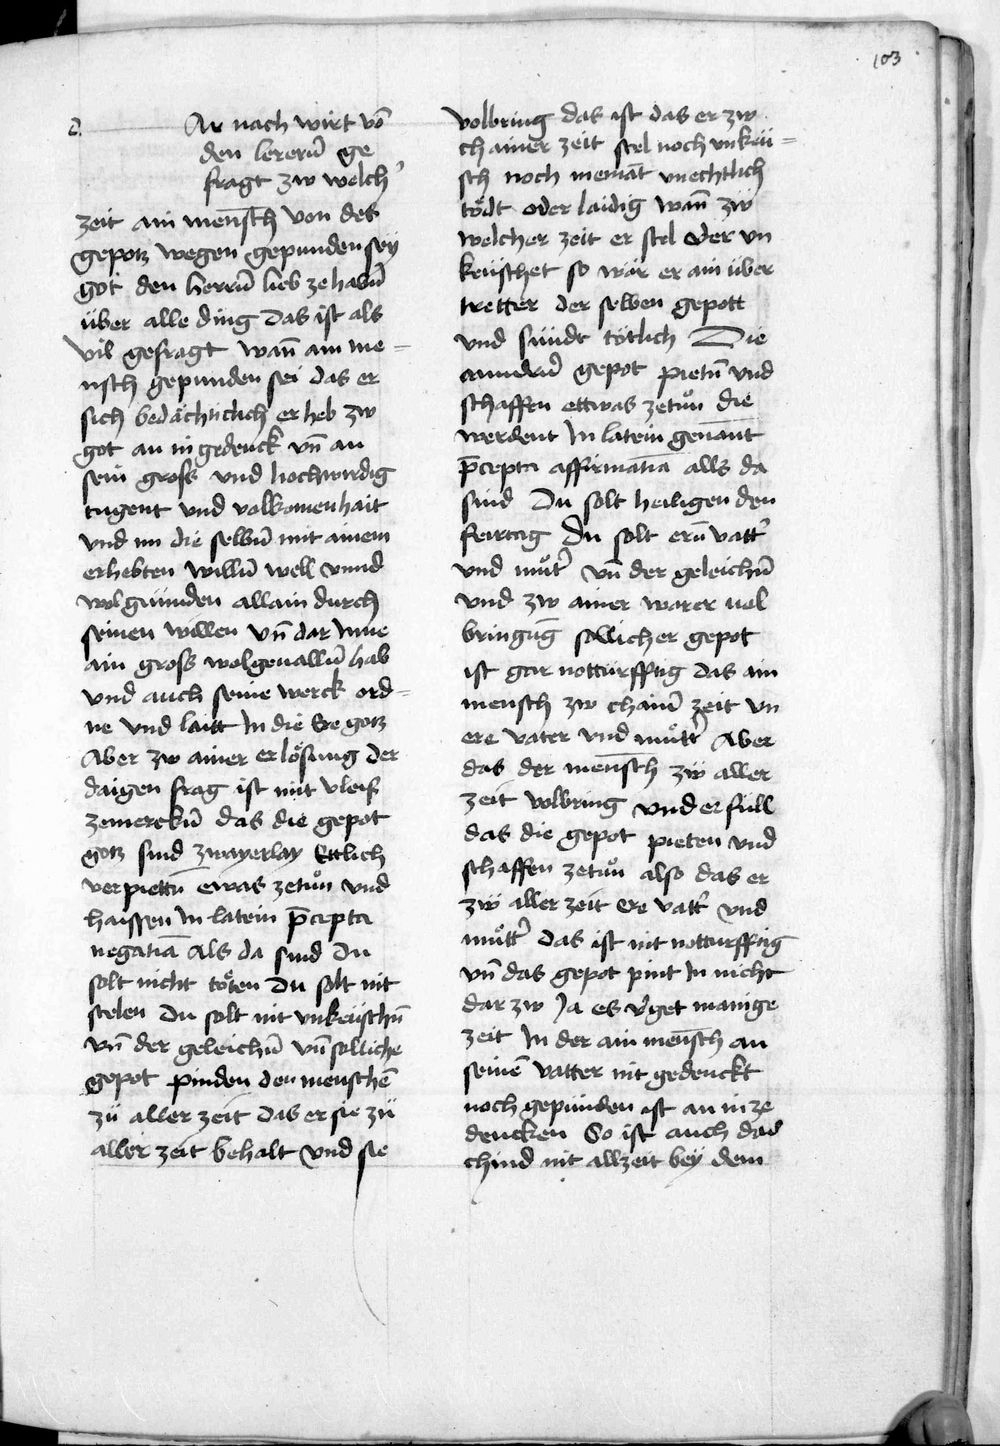 103
d
Ar nach wirt vō
den lererñ ge
fragt zw welch'
zeit ain mensch von des
gepotz wegen gepunden sey
got den herrñ lieb ze habñ
über alle ding das ist als
vil gefragt wañ ain me=
nsch gepunden sei das er
sich bedächticlich er heb zw
got an in gedenck vñ an
sein gross und hochwirdig
tugent und volkomenhait
und im die selbñ mit ainem
erhebten willñ well vnnd
wol günnden allain durch
seinen willen vñ dar Inne
ain gross wolgeuallñ hab
und auch seine werck ord=
ne und laitt In die Ere gotz
Aber zw ainer erlösung der
daigen frag ist mit vleis
zemerckñ das die gepot
gotz sind zwayerlay Ettlich
verpiettñ ewas zetůn und
haissen In latein p̄cepta
negatiā Als da sind Du
solt nicht töten Du solt nit
stelen Du solt nit vnkeüschñ
vñ der geleichñ vñ solliche
gepot pinden den menschē
zü aller zeit das er sie zü
aller zeit behalt und sie
volbring das ist das er zw
chainer zeit stel noch vnkeü=
sch noch niemāt vnechtlich
tödt oder laidig wañ zw
welcher zeit er stel oder vn
keüschet so wär er ain über
tretter der selben gepott
und sündt tötlich Die
anndrñ gepot pietñ und
schaffen ettwas zetůn die
werdent In latein genānt
p̄cepta affirmatiā alls da
sind Du solt heiligen den
feirtag Du solt erñ vatt'
und můt' vñ der geleichñ
und zw ainer warer uol
bringūg sollicher gepot
ist gar notturfftig das ain
mensch zw chainē zeit vn
ere vater und můtt' Aber
das der mensch zw aller
zeit volbring und erfüll
das die gepot pieten und
schaffen zetůn also das er
zw aller zeit ere vatt' und
můtt' das ist nit notturfftig
vñ das gepot pint In nicht
dar zw Ja es v'get manige
zeit In der ain mensch an
seinē vatter nit gedenckt
noch gepunden ist an in ze
dencken So ist auch das
chind nit allzeit bey dem